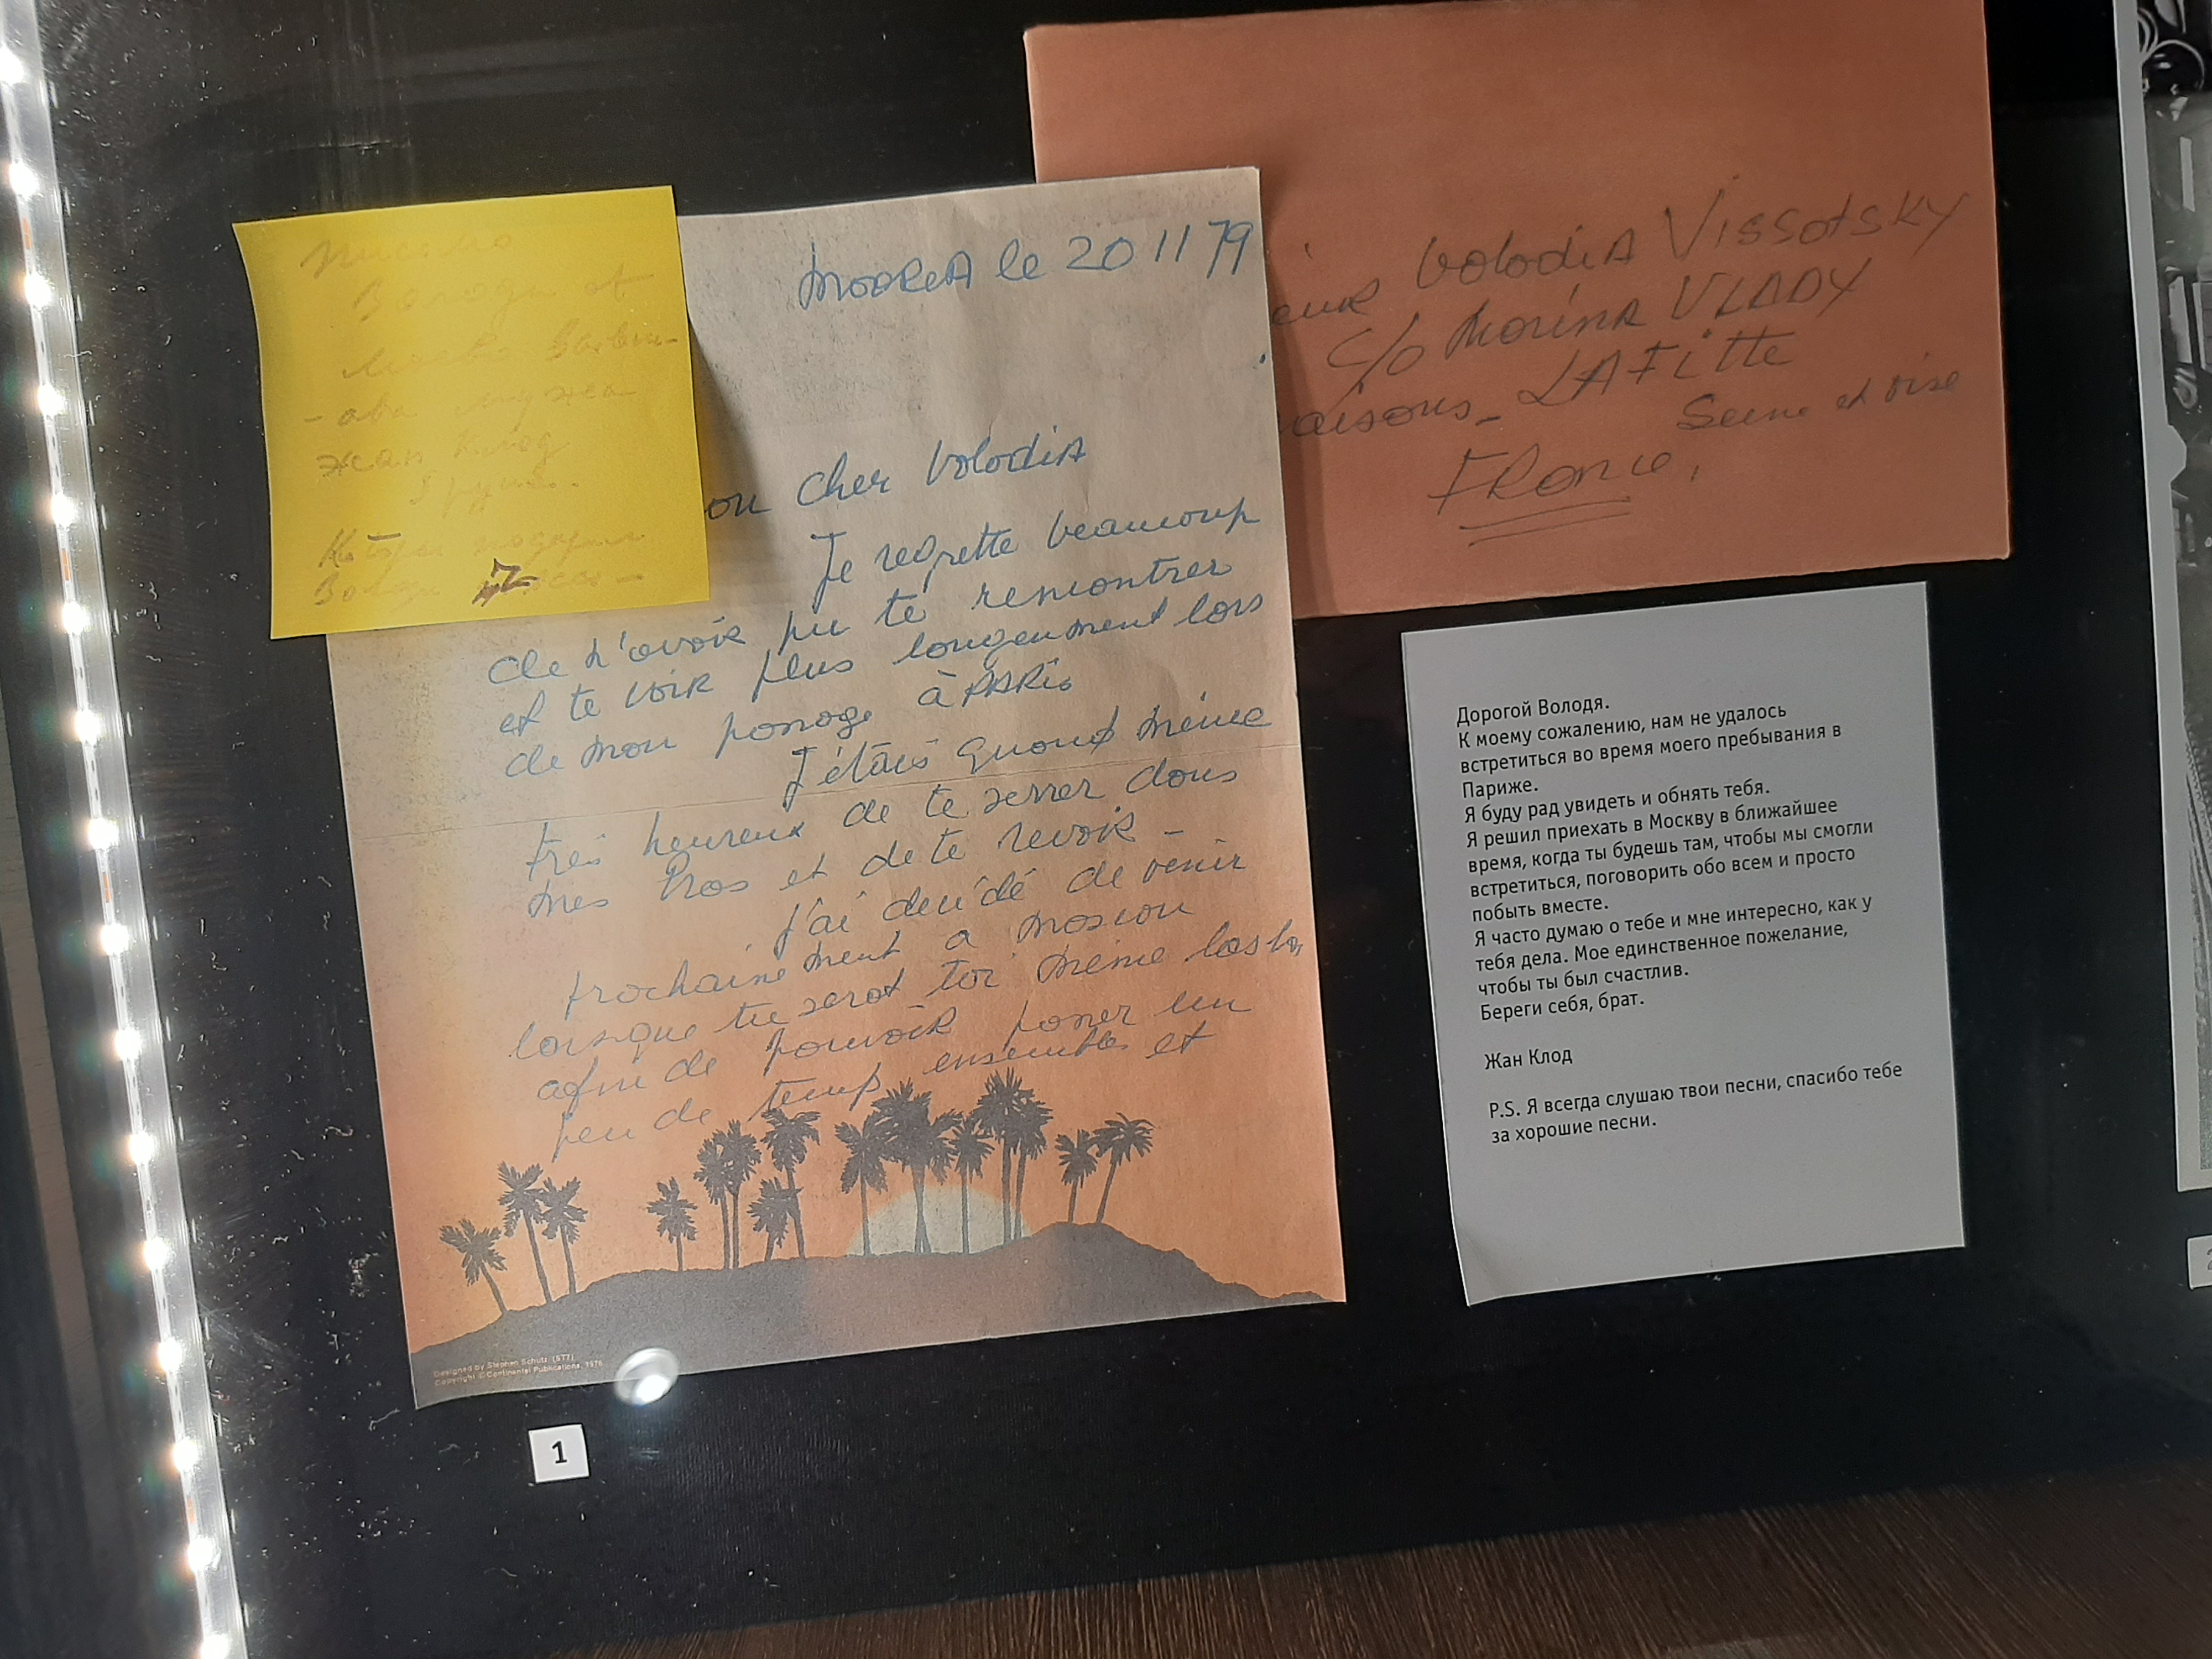 Письмо
Володи от
- ова мужа
Жан Клод
Moorea le 20 11 79
on cher Volodia
Je regrette beaucoup
de n'avoir pu te rencontrer
et te voir plus longeument lors
de mon passage à PARis
J'étais quand même
très heureux de te serrer dans
mes bras et de te revoir -
j'ai décidé de venir
prochainement a moscou
lorsque tu serat toi même
afin de pouvoir passer un
peu de temps ensembles et
Designed by Stephen Schutz (S77)
Copyright © Continental Publications, 1976
eur Volodia Vissotsky
c/o Marina VLADY
aisons - LAFitte
Seine et oise
France,
Дорогой Володя.
К моему сожалению, нам не удалось
встретиться во время моего пребывания в
Париже.
Я буду рад увидеть и обнять тебя.
Я решил приехать в Москву в ближайшее
время, когда ты будешь там, чтобы мы смогли
встретиться, поговорить обо всем и просто
побыть вместе.
Я часто думаю о тебе и мне интересно, как у
тебя дела. Мое единственное пожелание,
чтобы ты был счастлив.
Береги себя, брат.
Жан Клод
P.S. Я всегда слушаю твои песни, спасибо тебе
за хорошие песни.
1